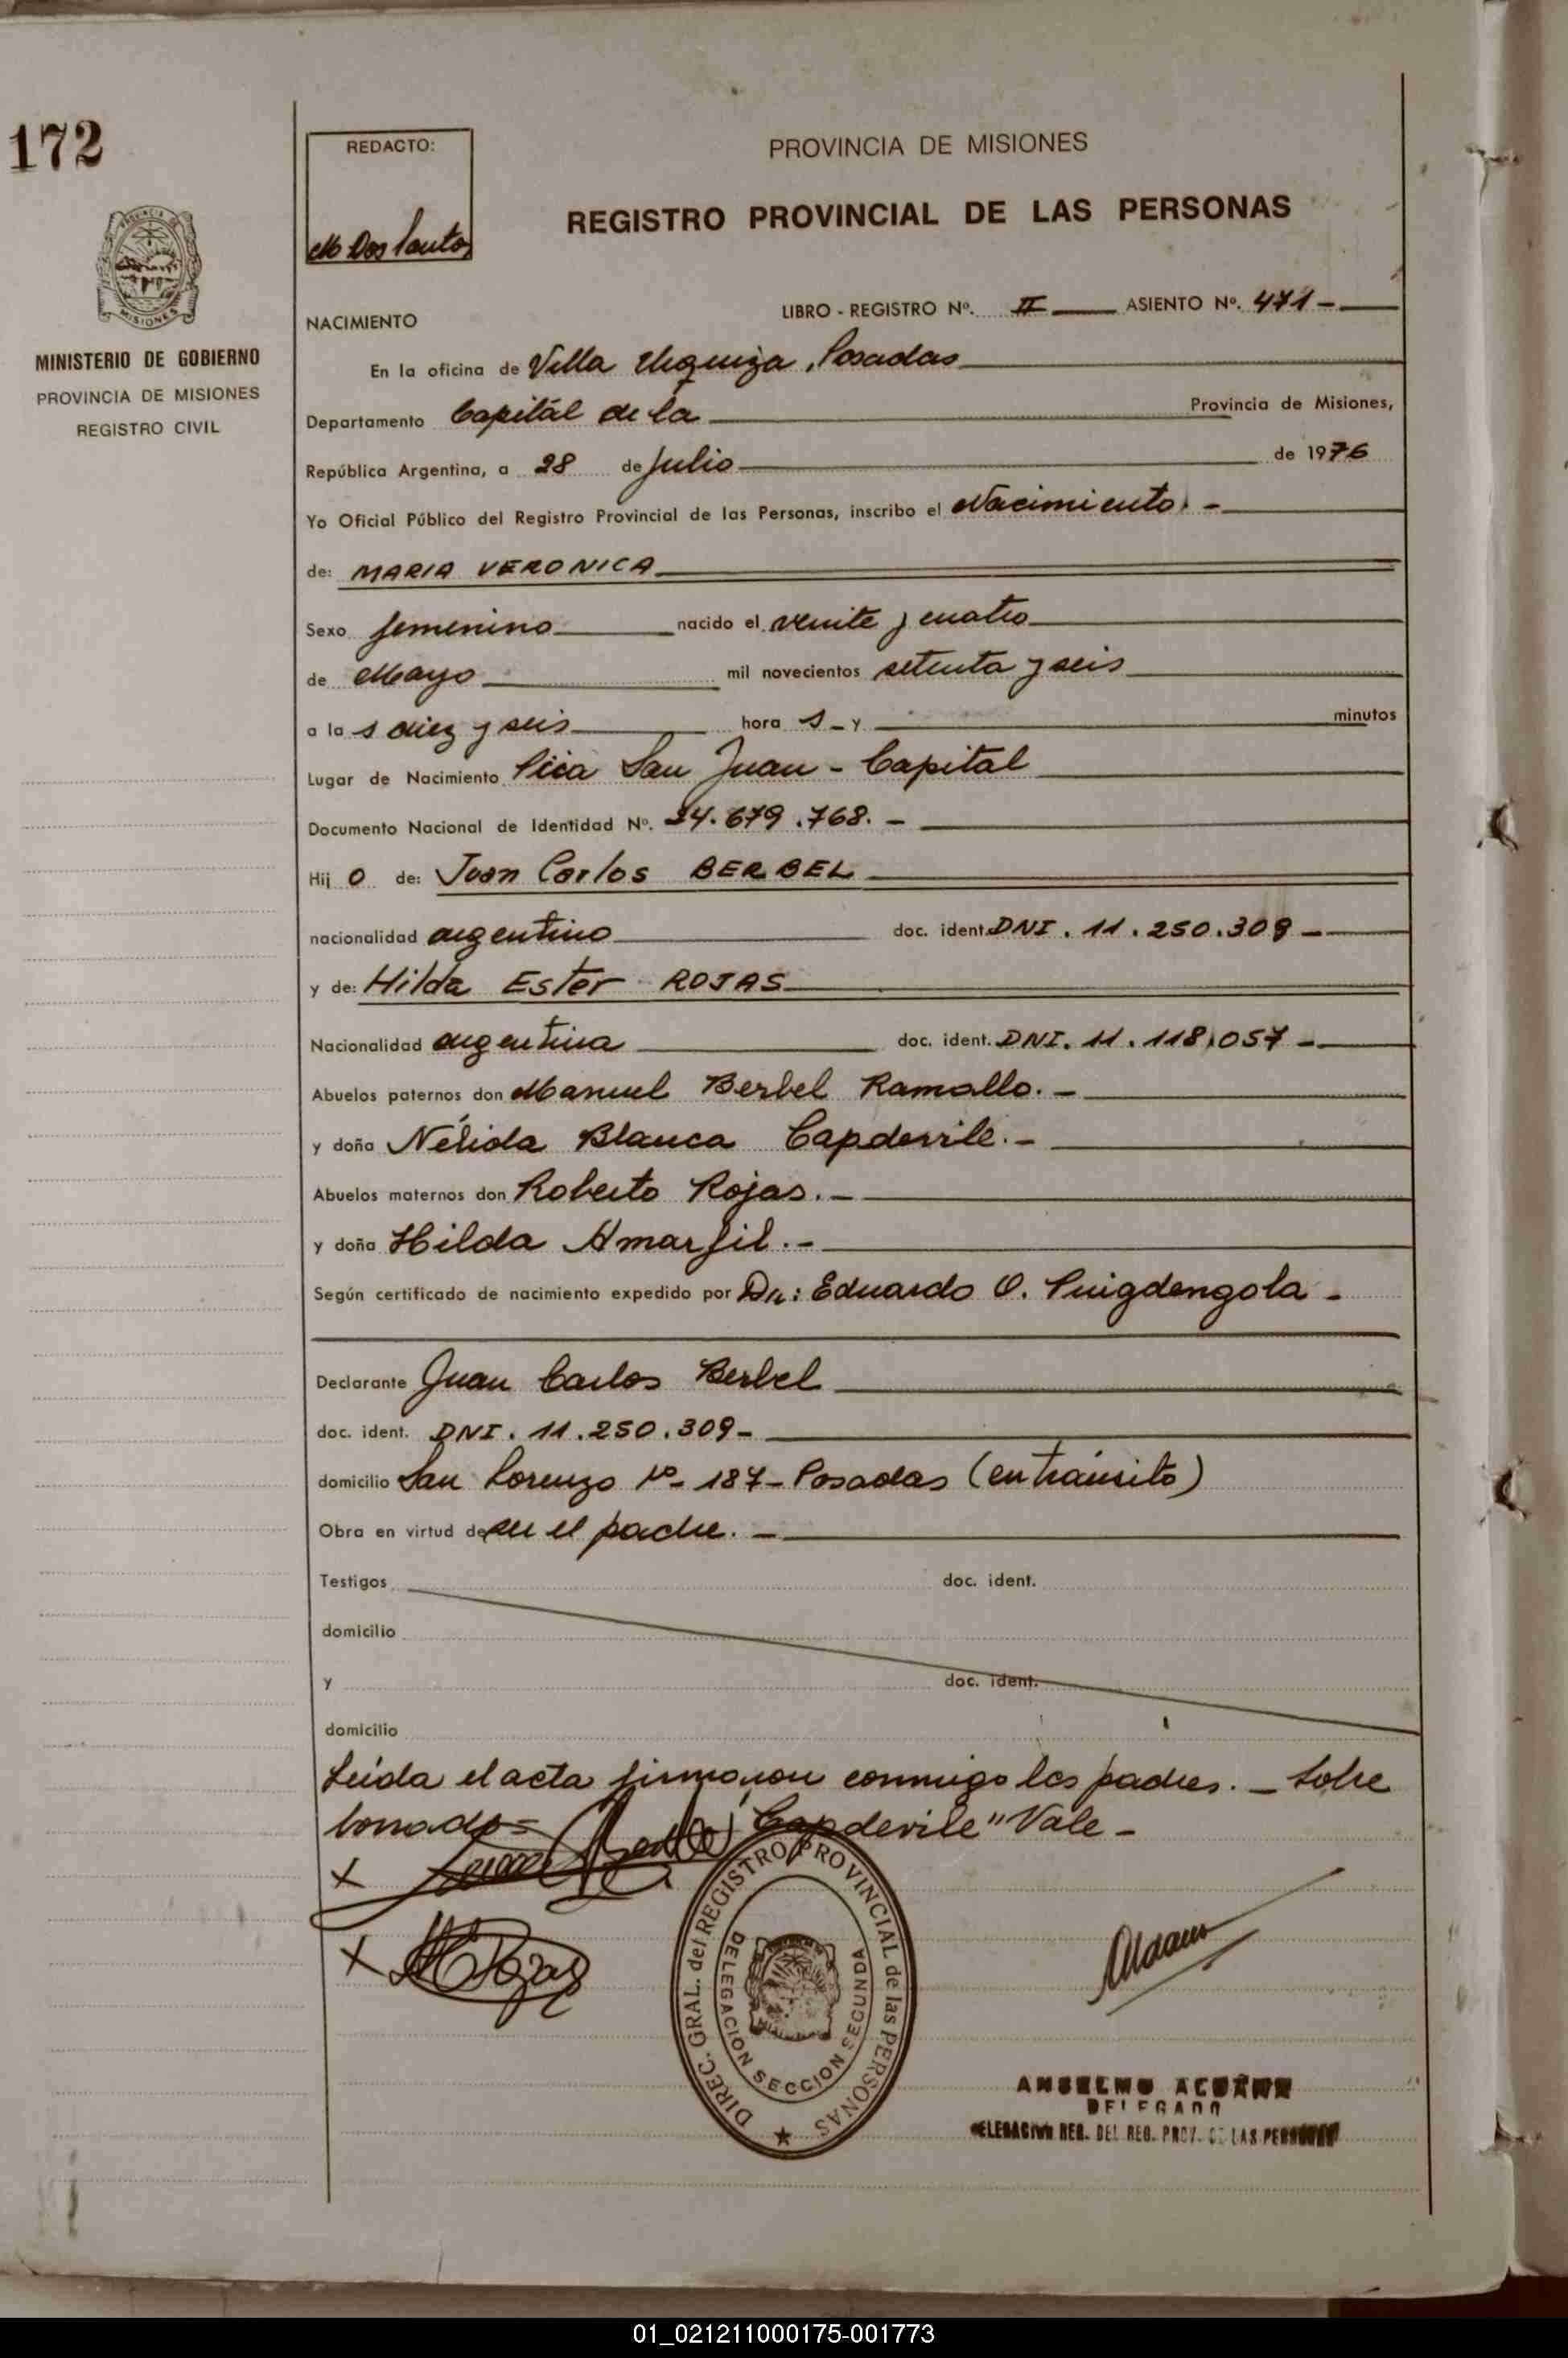 172
REDACTO:
M Dos Santos
PROVINCIA DE MISIONES
REGISTRO PROVINCIAL DE LAS PERSONAS
PROVINCIA DE
MISIONES
MINISTERIO DE GOBIERNO
PROVINCIA DE MISIONES
REGISTRO CIVIL
NACIMIENTO
LIBRO - REGISTRO Nº. II ASIENTO Nº. 471 -
En la oficina de Villa Urquiza, Posadas
Departamento Capitál de la Provincia de Misiones,
República Argentina, a 28 de Julio de 1976
Yo Oficial Público del Registro Provincial de las Personas, inscribo el Nacimiento. -
de: MARIA VERONICA
Sexo femenino nacido el veinte y cuatro
de Mayo mil novecientos setenta y seis
a la s diez y seis hora s - y minutos
Lugar de Nacimiento San Juan - Capital
Documento Nacional de Identidad Nº. 24.679.768. -
Hij o de: Juan Carlos BERBEL
nacionalidad argentino doc. ident. DNI. 11.250.309 -
y de: Hilda Ester ROJAS
Nacionalidad argentina doc. ident. DNI. 11.118.057 -
Abuelos paternos don Manuel Berbel Ramallo. -
y doña Nélida Blanca Capdevile. -
Abuelos maternos don Roberto Rojas. -
y doña Hilda Amarfil. -
Según certificado de nacimiento expedido por Dr: Eduardo O. Puigdengola -
Declarante Juan Carlos Berbel
doc. ident. DNI. 11.250.309 -
domicilio San Lorenzo Nº - 187 - Posadas (en tránsito)
Obra en virtud de ser el padre. -
Testigos doc. ident.
domicilio
y doc. ident.
domicilio
Leída el acta firmaron conmigo los padres. - Sobre
borrado = Capdevile" Vale -
X
X H E Rojas
DIREC. GRAL. del REGISTRO PROVINCIAL de las PERSONAS
DELEGACION SECCION SECUNDA
ANSELMO ACUÑA
DELEGADO
DELEGACION REG. DEL REG. PROV. DE LAS PERSONAS
01_021211000175-001773